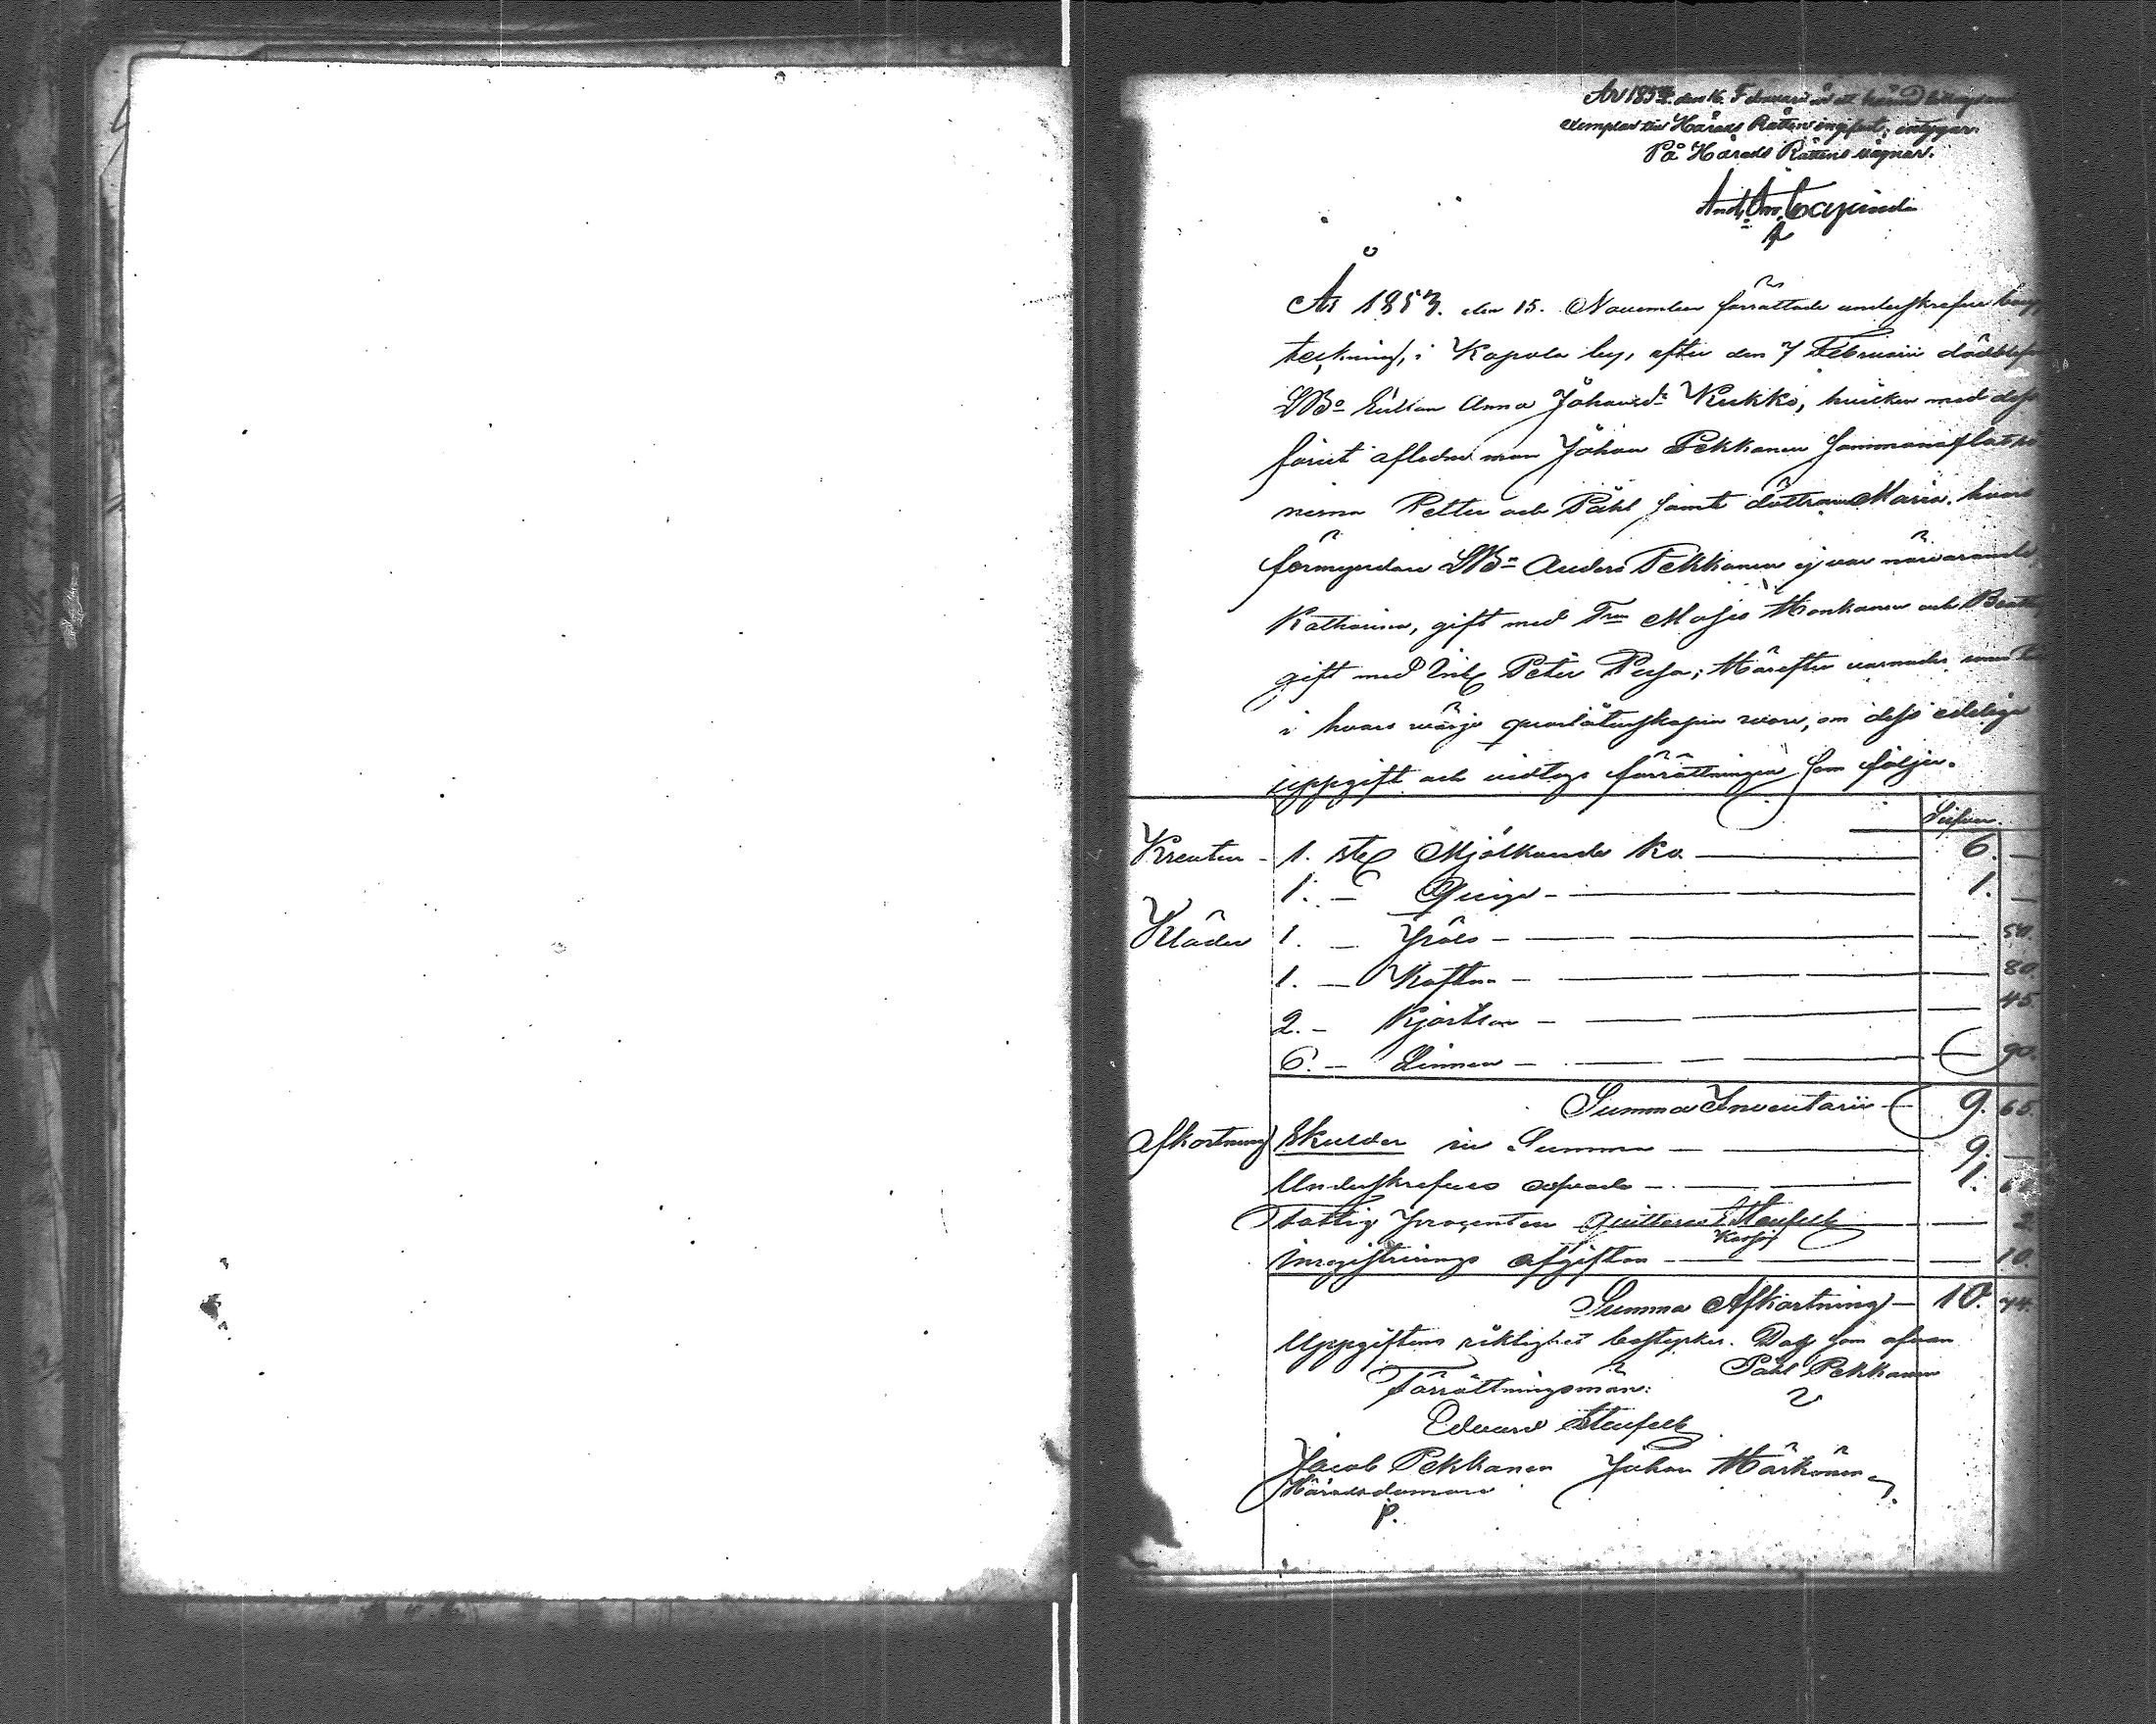 År 1854. den 16. Februari är ett härmed
exemplar till Härads Rätten ingifvet; intygar.
På Härads Rättens vägnar.
År 1853. den 15. November förrättade underskrefne boupp
teckning, i Kapola by, efter den 7 Februarii dödblefne
LBo Enkan Anna Johansdr Kukko, hvilken med dess
förut afledne man Johan Pekkanen sammanaflat sö
nerna Petter och Påhl samt döttrarne Maria, hvars
förmyndare LBn Anders Pekkanen ej var närvarande,
Katharina, gift med Trn Moses Monkanen och Beata
gift med Inh Peter Pusa; Härefter varnades
i hvars värjo qvarlåtenskapen varit, om dess edeliga
uppgift och vidtogs förrättningen som följer.
Silfver.
Kreatur - 1. stk Mjölkande Ko — 6. —
1. — Quiga — 1. —
Kläder 1. — — 50.
1. — Koftan — 80.
2. — Kjortlar — 45.
6. — Linnen — 90.
Summa Inventarii — 9. 65.
Afkortning Skulder in Summa — 9. —
Underskrefnes arfvode — 1.
Fattig procenten quitteras E Staufelt — 2
Inregistrerings afgiften — 10.
Summa Afkortning — 10. 74.
Uppgiftens riktighet bestyrker. Dag som ofvan
Påhl Pekkanen
Förrättningsmän:
Edvard Staufelt
Jacob Pekkanen Johan Härkönen
Häradsdomare
P.